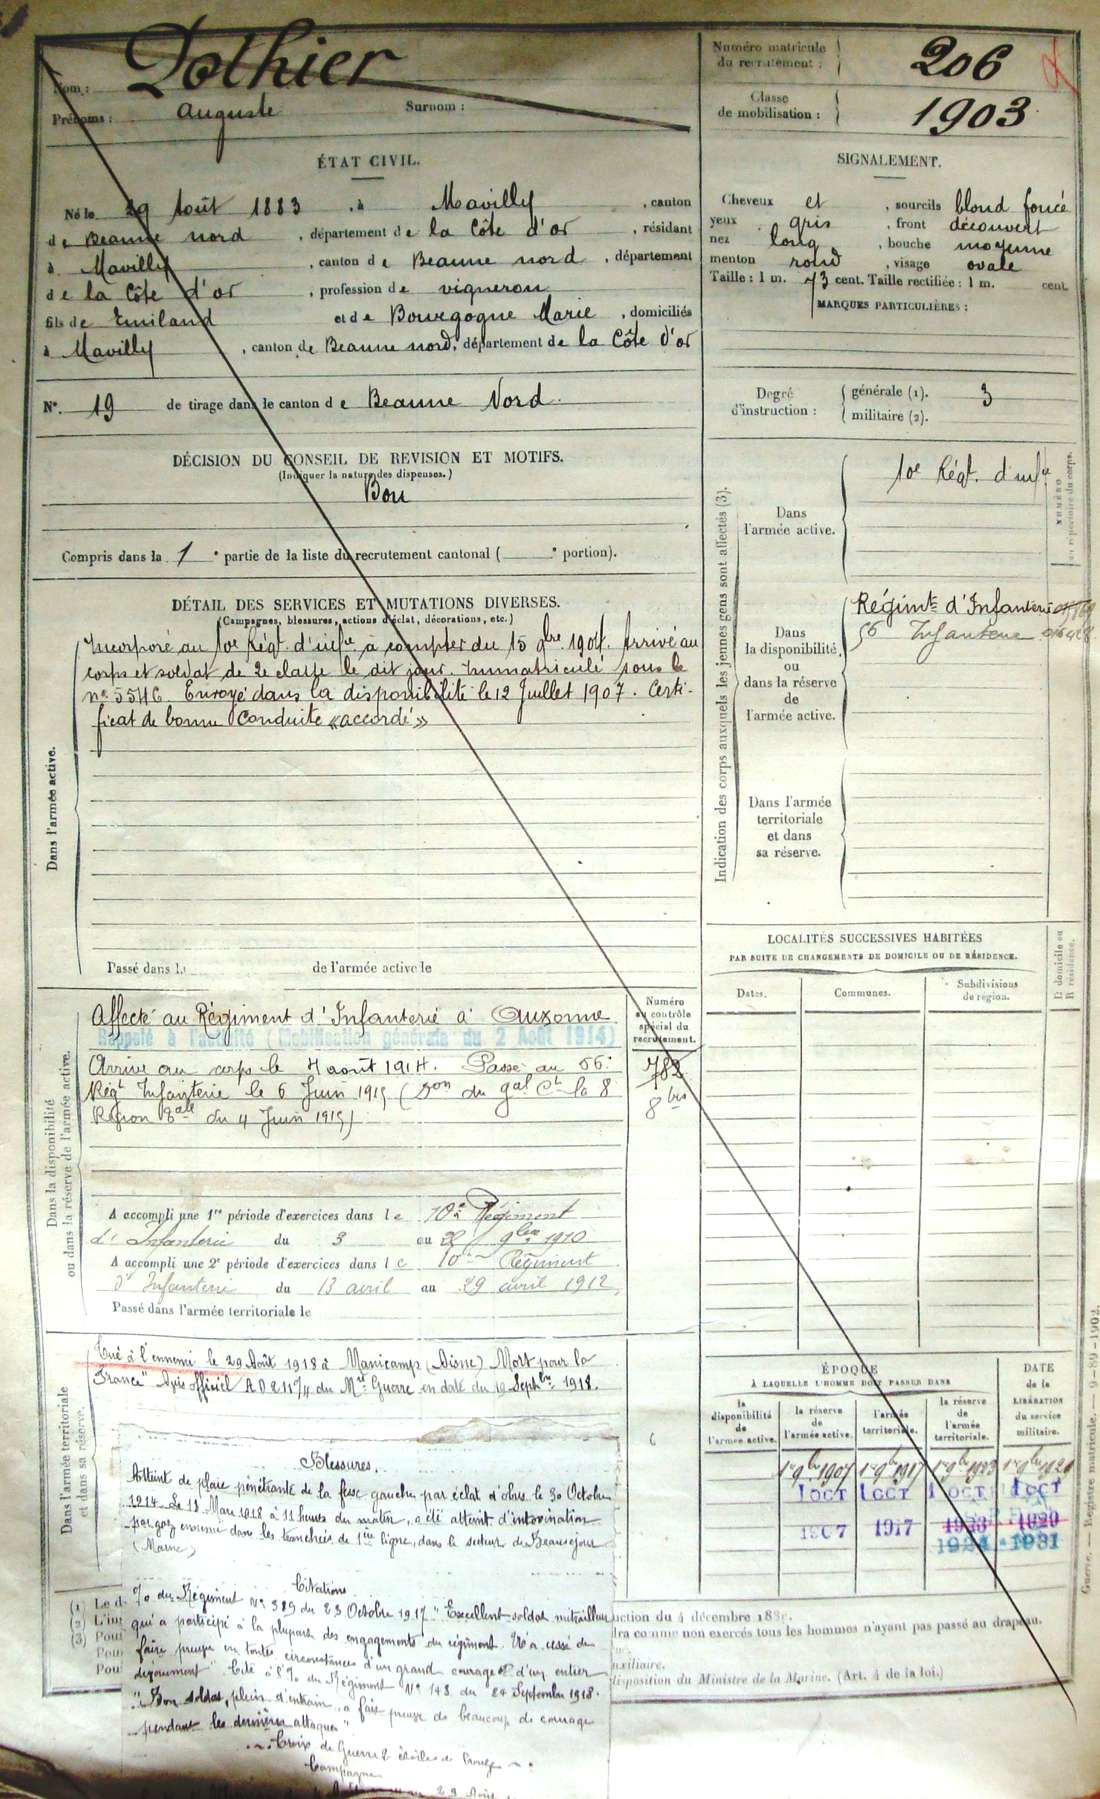 Nom : Dothier
Prénoms : Auguste Surnom :
Numéro matricule du recrutement : 206
Classe de mobilisation : 1903
ÉTAT CIVIL.
Né le 29 Août 1883, à Mavilly, canton
de Beaune nord, département de la Côte d'or, résidant
à Mavilly, canton de Beaune nord, département
de la Côte d'or, profession de vigneron
fils de Emiland et de Bourgogne Marie, domiciliés
à Mavilly, canton de Beaune nord, département de la Côte d'or
N° 19 de tirage dans le canton de Beaune Nord.
SIGNALEMENT.
Cheveux et, sourcils blond foncé
yeux gris, front découvert
nez long, bouche moyenne
menton rond, visage ovale
Taille : 1 m. 73 cent. Taille rectifiée : 1 m. cent.
MARQUES PARTICULIÈRES :
Degré d'instruction : générale (1). 3
militaire (2).
DÉCISION DU CONSEIL DE REVISION ET MOTIFS.
(Indiquer la nature des dispenses.)
Bon
Compris dans la 1e partie de la liste du recrutement cantonal ( e portion).
DÉTAIL DES SERVICES ET MUTATIONS DIVERSES.
(Campagnes, blessures, actions d'éclat, décorations, etc.)
Dans l'armée active.
Incorporé au 10e Régt. d'infrie à compter du 15 9bre 1904. Arrivé au
corps et soldat de 2e classe le dit jour. Immatriculé sous le
n° 5546. Envoyé dans la disponibilité le 12 Juillet 1907. Certi-
ficat de bonne conduite «accordé»
Passé dans l de l'armée active le
Indication des corps auxquels les jeunes gens sont affectés (3).
NUMÉRO au répertoire du corps.
Dans l'armée active.
10e Régt. d'infie
Dans la disponibilité, ou dans la réserve de l'armée active.
Régimt d'Infanterie
56 Infanterie
Dans l'armée territoriale et dans sa réserve.
LOCALITÉS SUCCESSIVES HABITÉES
PAR SUITE DE CHANGEMENTS DE DOMICILE OU DE RÉSIDENCE.
Dates. Communes. Subdivisions de région. D. domicile ou R. résidence.
Dans la disponibilité ou dans la réserve de l'armée active.
Numéro au contrôle spécial du recrutement.
782
8 bis
Affecté au Régiment d'Infanterie à Auxonne
Rappelé à l'activité (Mobilisation générale du 2 Août 1914)
Arrivé au corps le 4 août 1914. Passé au 56e
Régt Infanterie le 6 Juin 1915 (Don du gal Ct la 8
Région du 4 Juin 1915)
A accompli une 1re période d'exercices dans le 10e Régiment
d'Infanterie du 3 au 9bre 1910
A accompli une 2e période d'exercices dans le 10e Régiment
d'Infanterie du 13 avril au 29 avril 1912
Passé dans l'armée territoriale le
Dans l'armée territoriale et dans sa réserve.
Tué à l'ennemi le 29 Août 1918 à Manicamp (Aisne) Mort pour la
France" Avis officiel A.D.E. 1174 du Mre Guerre en date du 12 Septbre 1918.
Blessures.
Atteint de plaie pénétrante de la fesse gauche par éclat d'obus le 30 Octobre
1914. Le 18 Mars 1918 à 11 heures du matin, a été atteint d'intoxination
par gaz ennemi dans les tranchées de 1ère ligne, dans le secteur de Beauséjour
(Marne)
Citations
O/ du Régiment N° 389 du 23 Octobre 1917 "Excellent soldat mitrailleur
qui a participé à la plupart des engagements du régiment. N'a cessé de
faire preuve en toutes circonstances d'un grand courage et d'un entier
dévouement" Cité à l'O/ du Régiment N° 148 du 24 Septembre 1918.
"Bon soldat, plein d'entrain, a fait preuve de beaucoup de courage
pendant les dernières attaques"
Croix de Guerre 2 étoiles de bronze
Campagne
29 Août
ÉPOQUE
À LAQUELLE L'HOMME DOIT PASSER DANS
la disponibilité de l'armée active. la réserve de l'armée active. l'armée territoriale. la réserve de l'armée territoriale. DATE de la LIBÉRATION du service militaire.
1 OCT 1 OCT 1 OCT 1 OCT
1907 1917 1923 1929
1924 1931
(1) Le d
(2) L'in
(3) Pour
Pour
Pour
uction du 4 décembre 188
dra comme non exercés tous les hommes n'ayant pas passé au drapeau.
uxiliaire.
disposition du Ministre de la Marine. (Art. 4 de la loi.)
Guerre. — Registre matricule. — 9-89-1902.